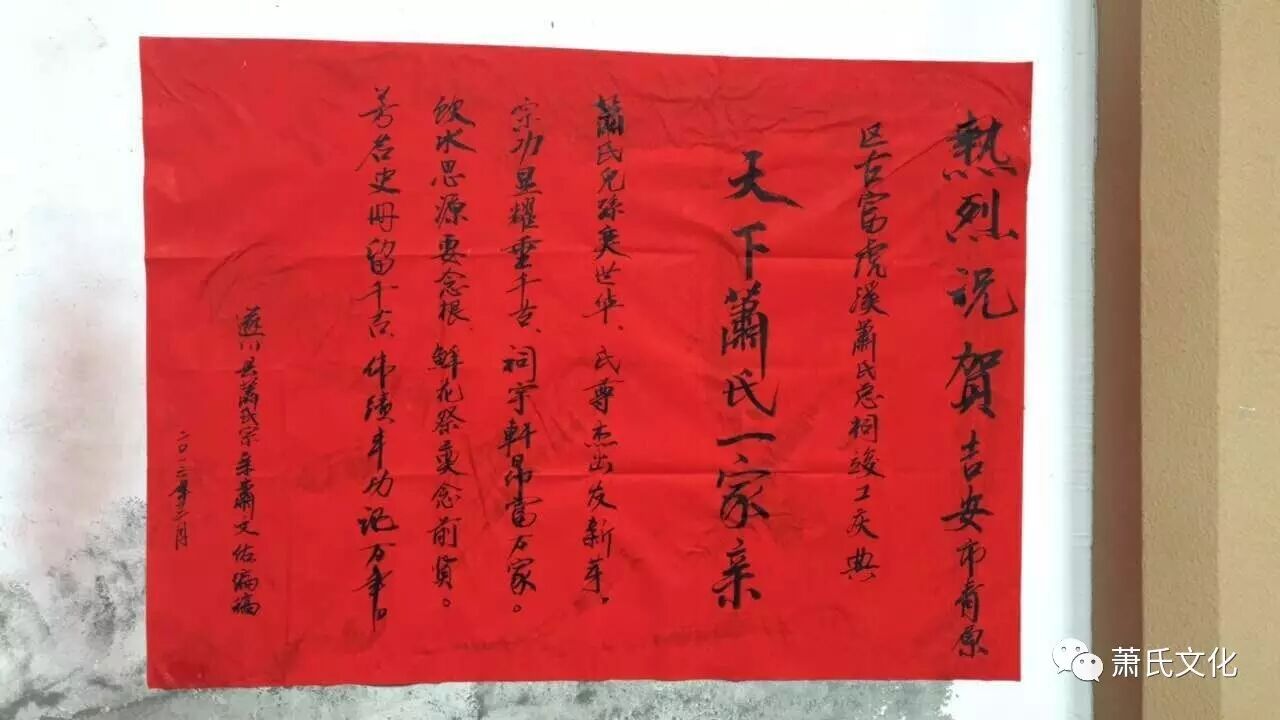 熱烈祝贺吉安市青原
区古富虎溪蕭氏总祠竣工庆典
天下蕭氏一家亲
蕭氏児孙奕世华、氏尊杰出发新芽。
宗功显耀垂千古、祠宇軒昂富万家。
饮水思源要念根、鲜花祭奠念前贤。
芳名史冊留千古、伟绩丰功记万年。
遂川县蕭氏宗亲蕭文佑
二〇一三年十二月
萧氏文化